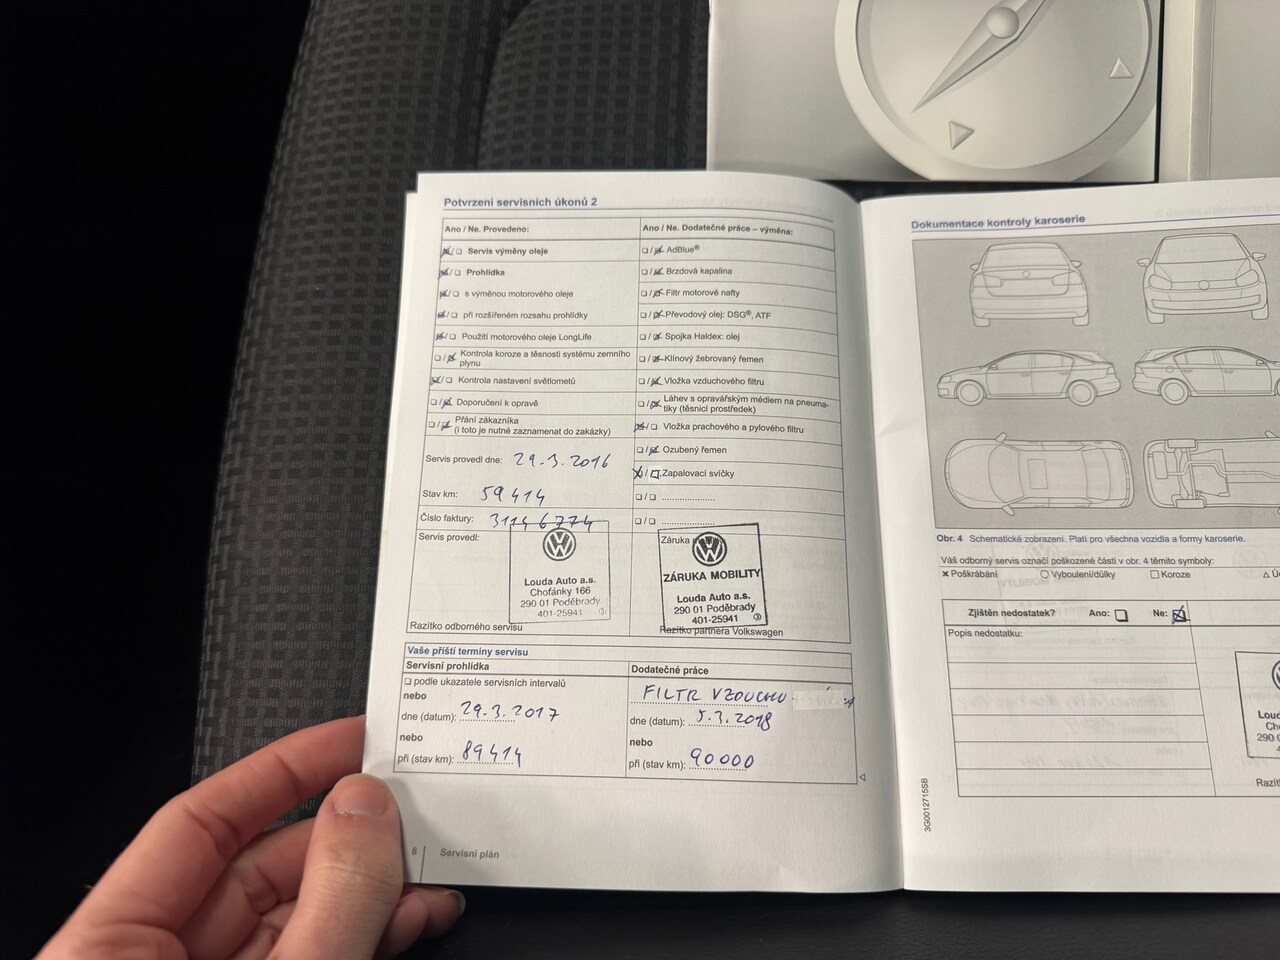 Potvrzení servisních úkonů 2
Ano / Ne. Provedeno:
Servis výměny oleje
Prohlídka
s výměnou motorového oleje
při rozšířeném rozsahu prohlídky
Použití motorového oleje LongLife
Kontrola koroze a těsnosti systému zemního
plynu
Kontrola nastavení světlometů
Doporučení k opravě
Přání zákazníka
(i toto je nutné zaznamenat do zakázky)
Servis provedl dne: 29.3.2016
Stav km: 59414
Číslo faktury: 31146774
Servis provedl:
Louda Auto a.s.
Choťánky 166
290 01 Poděbrady
401-25941
Razítko odborného servisu
Ano / Ne. Dodatečné práce – výměna:
AdBlue®
Brzdová kapalina
Filtr motorové nafty
Převodový olej: DSG®, ATF
Spojka Haldex: olej
Klínový žebrovaný řemen
Vložka vzduchového filtru
Láhev s opravářským médiem na pneuma-
tiky (těsnicí prostředek)
Vložka prachového a pylového filtru
Ozubený řemen
Zapalovací svíčky
Záruka
ZÁRUKA MOBILITY
Louda Auto a.s.
290 01 Poděbrady
401-25941
Razítko partnera Volkswagen
Vaše příští termíny servisu
Servisní prohlídka
podle ukazatele servisních intervalů
nebo
dne (datum): 29.3.2017
nebo
při (stav km): 89414
Dodatečné práce
FILTR VZDUCHU
dne (datum): 5.3.2018
nebo
při (stav km): 90000
8 Servisní plán
Dokumentace kontroly karoserie
Obr. 4 Schematické zobrazení. Platí pro všechna vozidla a formy karoserie.
Váš odborný servis označí poškozené části v obr. 4 těmito symboly:
Poškrábání Vyboulení/důlky Koroze
Zjištěn nedostatek? Ano: Ne:
Popis nedostatku:
3G0012715SB